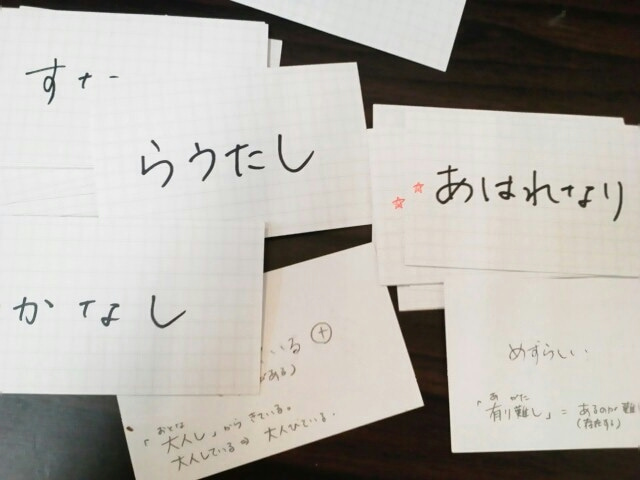 らうたし
☆☆ あはれなり
かなし
いる ⊕
がある)
おとな
「大人し」からきている。
大人している⇒大人びている。
めずらしい
あ がた
「有り難し」= あるのが難
(存在する)